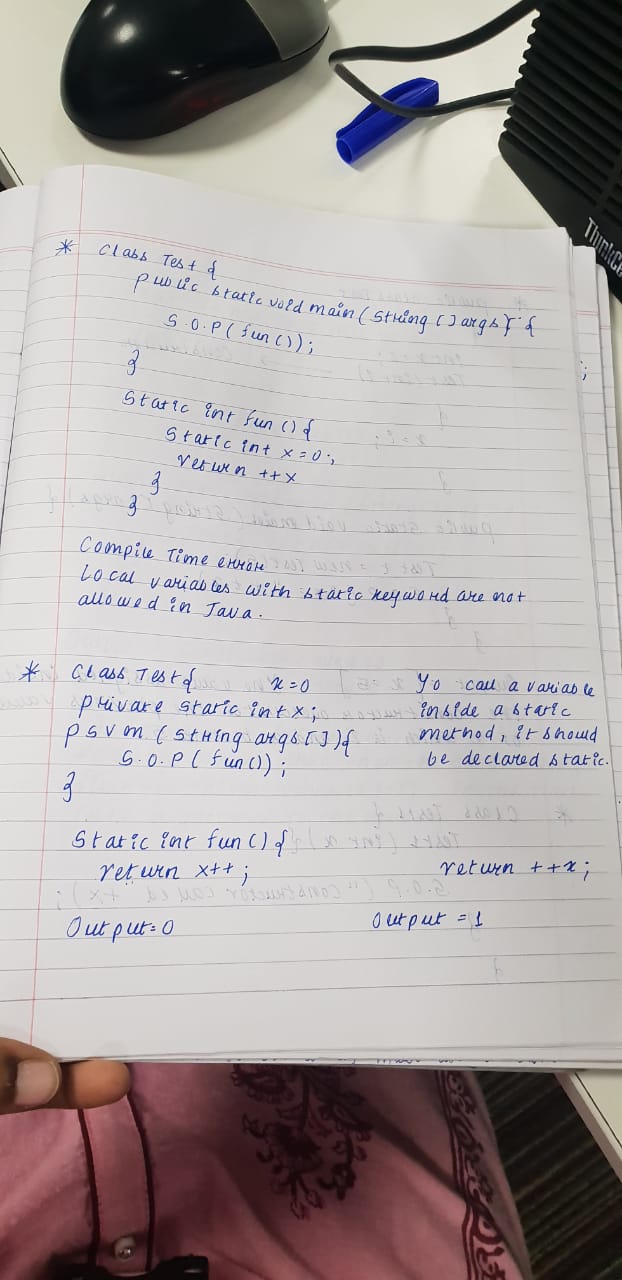 * Class Test {
public static void main(String [] args) {
S.O.P(fun());
}
Static int fun () {
Static int x = 0;
return ++x
}
}
Compile Time error
Local variables with static keyword are not
allowed in Java.
* Class Test { x=0
private static int x;
psvm (String args []) {
S.O.P( fun());
}
To call a variable
inside a static
method, it should
be declared static.
Static int fun () {
return x++;
return ++x;
Output = 0
Output = 1
ThinkCe